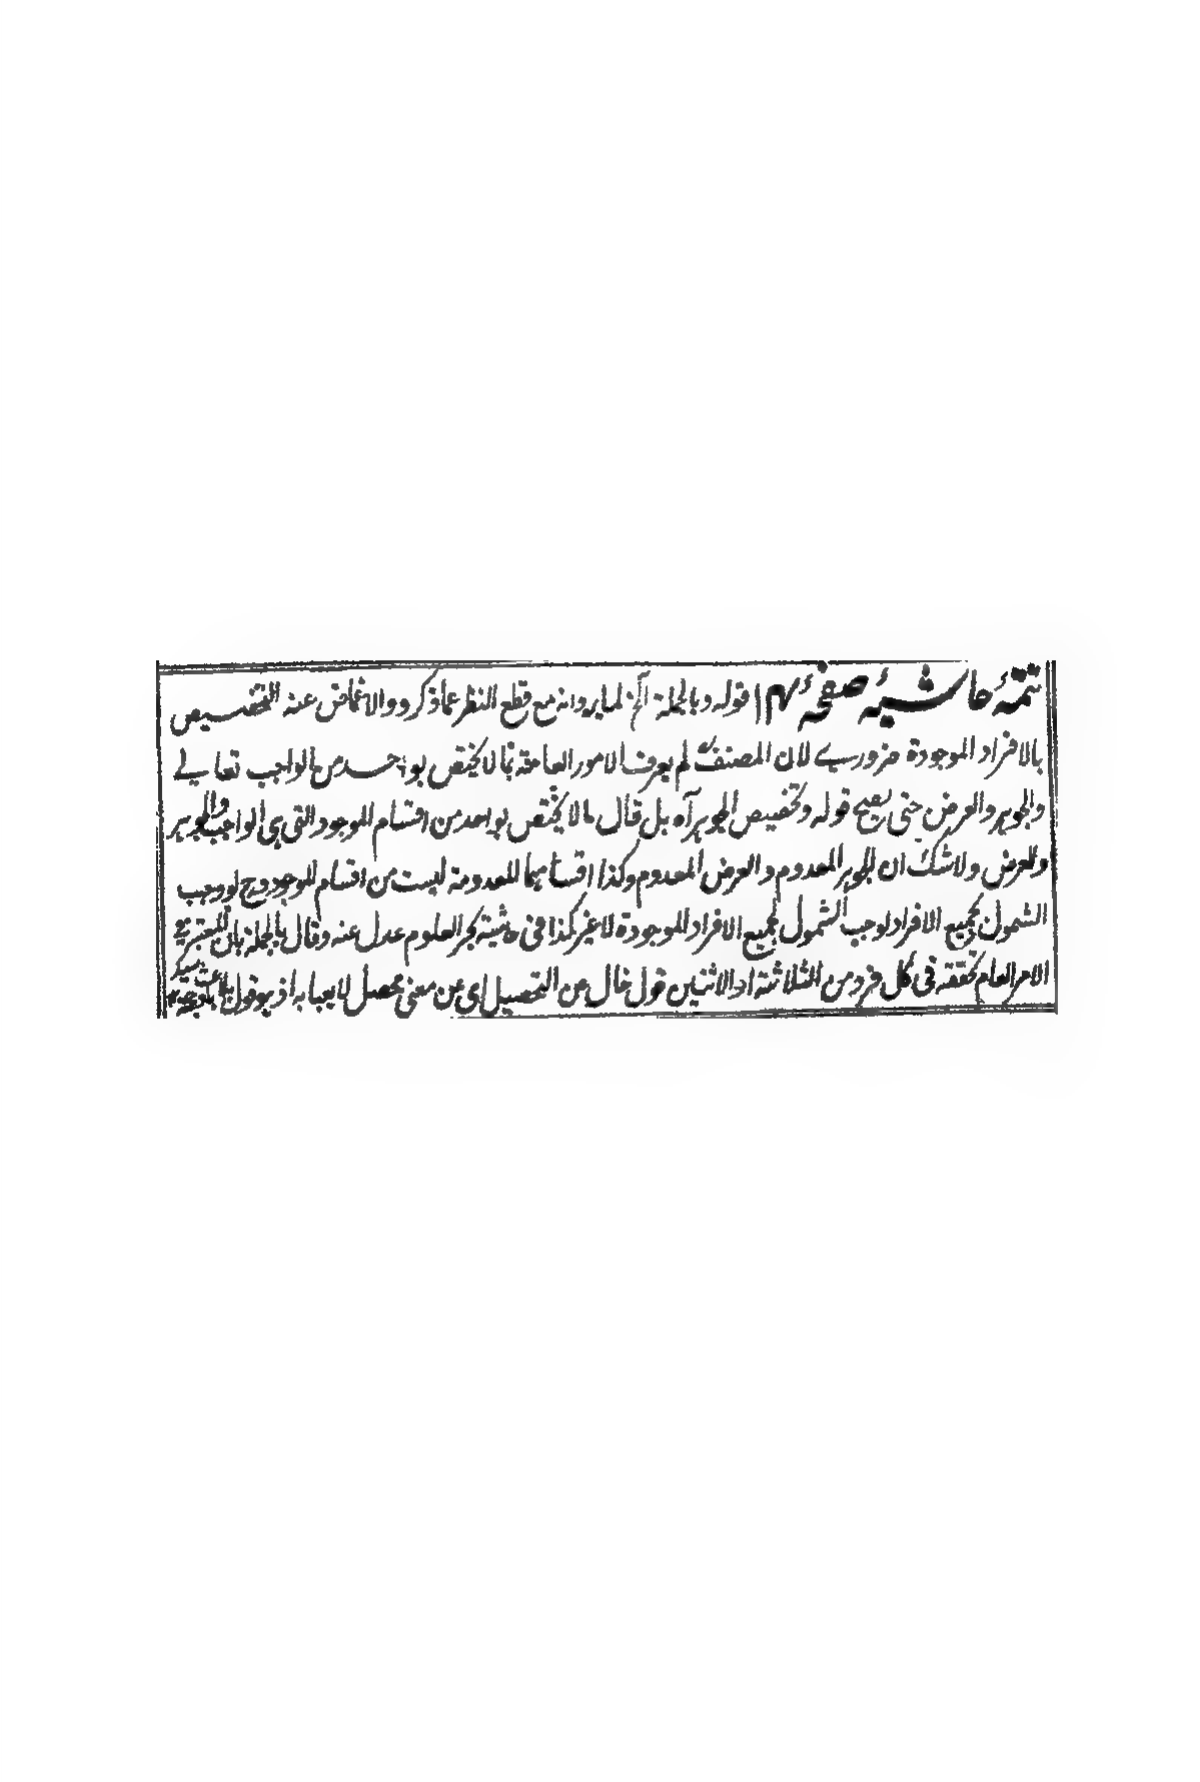 تتمۂ حاشیۂ صفحۂ ۱۴ قوله وبالجملة آلخ لما یرد انه مع قطع النظر عما ذکروا والاغماض عنه التخصیص
بالافراد الموجودة ضروری لان المصنف لم یعرف الامور العامة بما لا یختص بواحد من الواجب تعالی
والجوهر والعرض حتی یصح قوله وتخصیص الجوهر آه بل قال ما لا یختص بواحد من اقسام الموجود التی هی الواجب والجوهر
والعرض ولا شک ان الجوهر المعدوم والعرض المعدوم وکذا اقسامهما المعدومة لیست من اقسام الموجود وح لو وجب
الشمول لجمیع الافراد لوجب الشمول لجمیع الافراد الموجودة لا غیر کذا فی حاشیة بحر العلوم عدل عنه وقال بالجملة بان المعتبر فی
الامر العام تحققه فی کل فرد من الثلاثة او الاثنین قول خال عن التحصیل ای عن معنی محصل لا یعبأ به اذ هو قول بلا